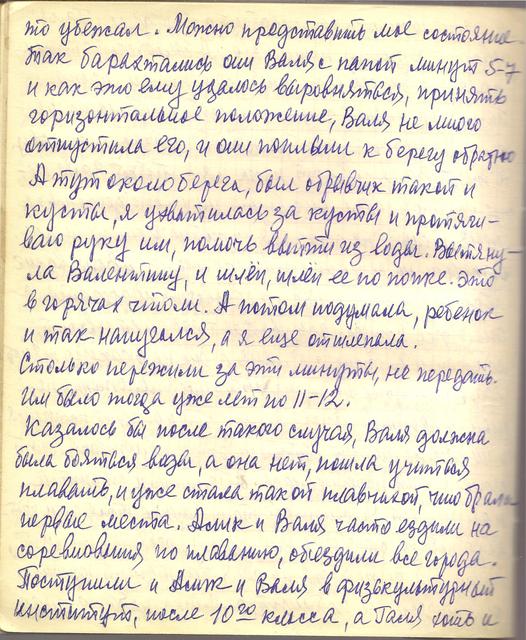 то убежал. Можно представить мое состояние
так барахтались они Валя с папой минут 5-7
и как это ему удалось выровняться, принять
горизонтальное положение, Валя не много
отпустила его, и они поплыли к берегу обратно
А тут около берега, был обрывчик такой и
кусты, я ухватилась за кусты и протяги-
ваю руку им, помочь выйти из воды. Вытяну-
ла Валентину, и шлёп, шлёп ее по попке. Это
в горячах чтоли. А потом подумала, ребенок
и так напугался, а я еще отшлепала.
Столько пережили за эти минуты, не передать.
Им было тогда уже лет по 11-12.
Казалось бы после такого случая, Валя должна
была бояться воды, а она нет, пошла учиться
плавать, и уже стала такой плавчихой, что брали
первые места. Алик и Валя часто ездили на
соревнования по плаванию, объездили все города.
Поступили и Алик и Валя в физкультурный
институт, после 10го класса, а Галя хоть и